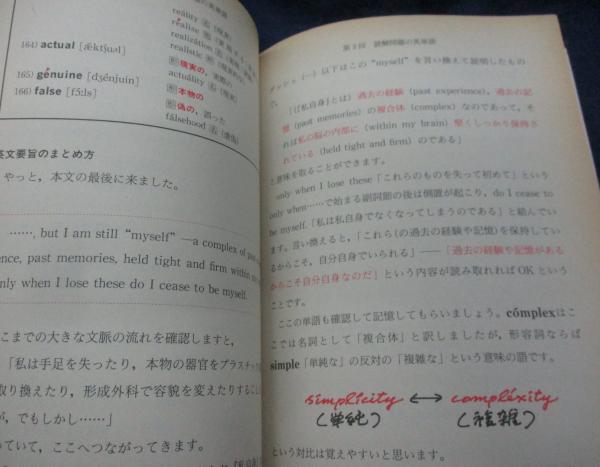 reálity
réalise
realizátion
realístic
164) actual [ǽktʃuəl]
現実の,
actuálity
165) génuine [dʒénjuin]
本物の
166) false [fɔːls]
偽の, 誤った
fálsehood
英文要旨のまとめ方
やっと, 本文の最後に来ました。
……, but I am still “myself”—a complex of past
ence, past memories, held tight and firm within my
only when I lose these do I cease to be myself.
ここまでの大きな文脈の流れを確認しますと,
「私は手足を失ったり, 本物の器官をプラスチック
取り換えたり, 形成外科で容貌を変えたりすること
が, でもしかし……」
っていて, ここへつながってきます。
読解問題の英単語
ダッシュ (—) 以下はこの “myself” を言い換えて説明したもの
で,
「[私自身]とは) 過去の経験 (past experience), 過去の記
憶 (past memories) の複合体 (complex) なのであって, そ
れは私の脳の内部に (within my brain) 堅くしっかり保持さ
れている (held tight and firm) のである」
と意味を取ることができます。
only when I lose these「これらのものを失って初めて」という
only when……で始まる副詞節の後は倒置が起こり, do I cease to
be myself.「私は私自身でなくなってしまうのである」と結んでい
ます。言い換えると,「これら(の過去の経験や記憶)を保持してい
るからこそ, 自分自身でいられる」——「過去の経験や記憶がある
からこそ自分自身なのだ」という内容が読み取れれば OK という
ことです。
ここの単語も確認して記憶してもらいましょう。cómplex はこ
こでは名詞として「複合体」と訳しましたが, 形容詞ならば
simple「単純な」の反対の「複雑な」という意味の語です。
simplícity ⟷ compléxity
(単純) (複雑)
という対比は覚えやすいと思います。